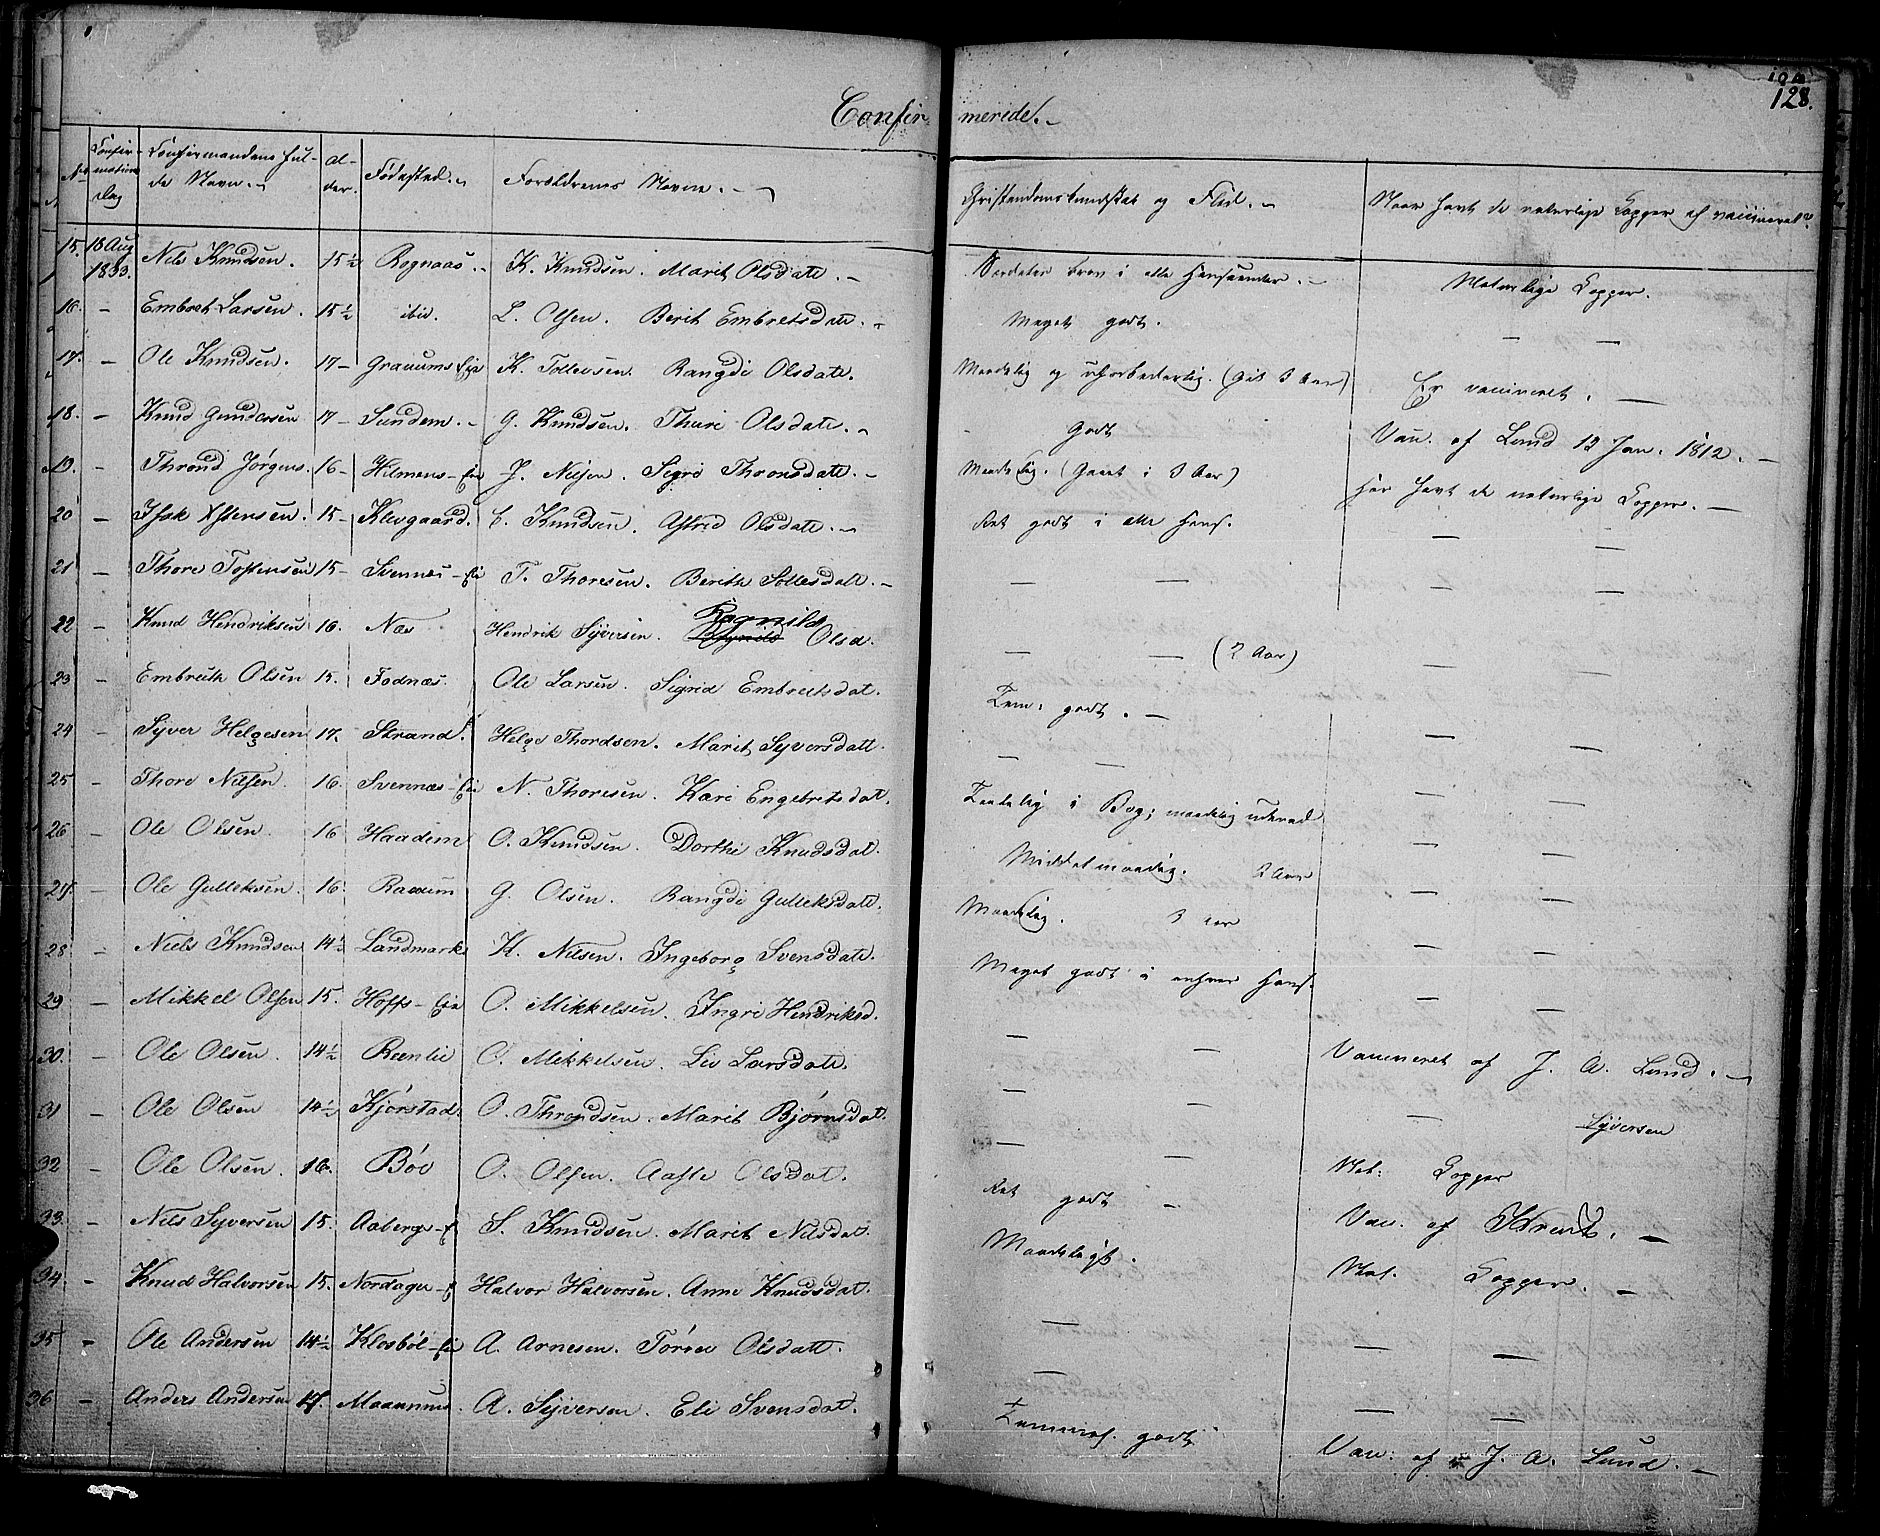 128.
Confirmerede.
No Confirmations Dag Confirmandens fulde Navn. Alder. Fødested. Forældrenes Navne. Christendomskundskab og Flid. Naar havt de naturlige Kopper el. vaccineret?
15. 18 Aug 1833. Nils Knudsen. 15½ Rognaas. K. Knudsen. Marit Olsdatt. i alle Henseender. Naturlige Kopper.
16. – Embret Larsen. 15½ ibid. L. Olsen. Berit Embretsdatt. Meget godt. – –
17. – Ole Knudsen. 17 – Gravums Eie K. Tollevsen. Rangdi Olsdatt. Maadelig og uforbederlig. (Gik 3 Aar) Er vaccineret.
18. – Knud Gundersen 17 – Sundem. G. Knudsen. Thuri Olsdatt. Godt Vacc. af Lund 12 Jan. 1812.
19. – Thrond Jørgens. 16 – Hilmens-Eie J. Nilsen. Sigri Thronsdatt. Maadelig. (Gaaet i 3 Aar) Har havt de naturlige Kopper.
20 – Ifsak Østensen. 15 – Klevgaard. E. Knudsen. Astrid Olsdatt. Ret godt i alle Hens. – –
21 – Thore Tostensen 15 – Svennes-Eie T. Thoresen. Berith Tollesdatt. – – – –
22 – Knud Hendriksen 16. Næs Hendrik Syversen. Ragnild Olsd. – – (2 Aar) – –
23 – Embreth Olsen 15. Fodnæs. Ole Larsen. Sigrid Embretsdat. Tem. godt. – –
24 – Syver Helgesen 17. Strand. Helge Thordsen. Marit Syversdatt. – – – –
25 – Thore Nilsen. 16. Svennæs-Eie N. Thoresen. Kari Engebretsdat. Taalelig i Bog; maadelig udenad – –
26 – Ole Olsen. 16 Haadem O. Knudsen. Dorthe Knudsdat. Middelmaadig. 2 Aar – –
27. – Ole Gulleksen. 16. Ravum G. Olsen. Rangdi Gulleksdatt. Maadelig. 3 Aar – –
28 – Niels Knudsen 14½ Landmark K. Nilsen. Ingeborg Svensdatt. Meget godt i enhver Hens. – –
29 – Mikkel Olsen 15. Hoffs-Eie O. Mikkelsen. Ingri Hendriksd. – – – –
30. – Ole Olsen. 14½ Reenlie O. Mikkelsen. Liv Larsdatt. – – Vaccineret af J. A. Lund.
31 – Ole Olsen 14½ Kjørstad. O. Throndsen. Marit Bjørnsdat. – – – Syversen
32 – Ole Olsen. 16. Bøe O. Olsen. Aaste Olsdat. Ret godt Nat. Kopper
33. – Nils Syversen 15. Aabergs-E S. Knudsen. Marit Nilsdat. Maadeligt. Vacc. af
34 – Knud Halvorsen 15. Nordager-E Halvor Halvorsen. Anne Knudsdat. – Nat. Kopper.
35 – Ole Andersen 14½ Klosbøl-Eie A. Arnesen. Torine Olsdatt. – – –
36 – Anders Andersen 17. A. Syversen. Eli Svensdat. godt Vacc. af J. A. Lund.